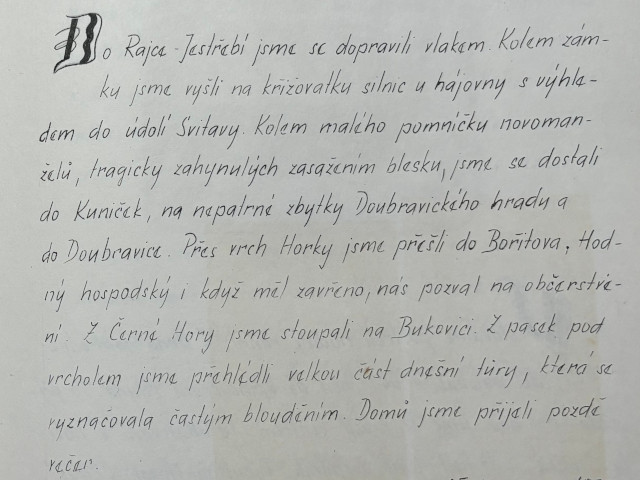 Do Rajce-Jestřebí jsme se dopravili vlakem. Kolem zám-
ku jsme vyšli na křižovatku silnic u hájovny s výhle-
dem do údolí Svitavy. Kolem malého pomníčku novoman-
želů, tragicky zahynulých zasažením blesku, jsme se dostali
do Kuniček, na nepatrné zbytky Doubravického hradu a
do Doubravice. Přes vrch Horky jsme přešli do Bořitova. Hod-
ný hospodský i když měl zavřeno, nás pozval na občerstve-
ní. Z Černé Hory jsme stoupali na Bukovici. Z pasek pod
vrcholem jsme přehlédli velkou část dnešní túry, která se
vyznačovala častým blouděním. Domů jsme přijeli pozdě
večer.